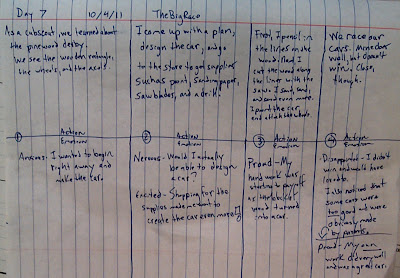 Day 7 10/4/11 The Big Race
As a cubscout, we learned about
the pinewood derby.
We see the wooden rectangle,
the wheels, and the axels.
I come up with a plan,
design the car, and go
to the store to get supplies
such as paint, sanding paper,
saw blades, and a drill.
First, I pencil in
the lines on the
wood. Next I
cut the wood along
the lines with the
saw. I sand, sand,
and sand even more.
I paint the car
and attach the wheels.
We race our
cars. Mine does
well, but doesn't
win. Close,
though.
1 Action
Emotion
2 Action
Emotion
3 Action
Emotion
4 Action
Emotion
Anxious- I wanted to begin
right away and
make the car.
Nervous- Would I actually
be able to design
a car?
Excited- Shopping for the
supplies made me want to
create the car even more
Proud- My
hard work was
starting to pay off
as the block of
wood turned
into a car.
Disappointed- I didn't
win and would have
liked to.
I also noticed that
some cars were
too good and were
obviously made
by parents.
Proud- My own
work did very well
and was a great car.